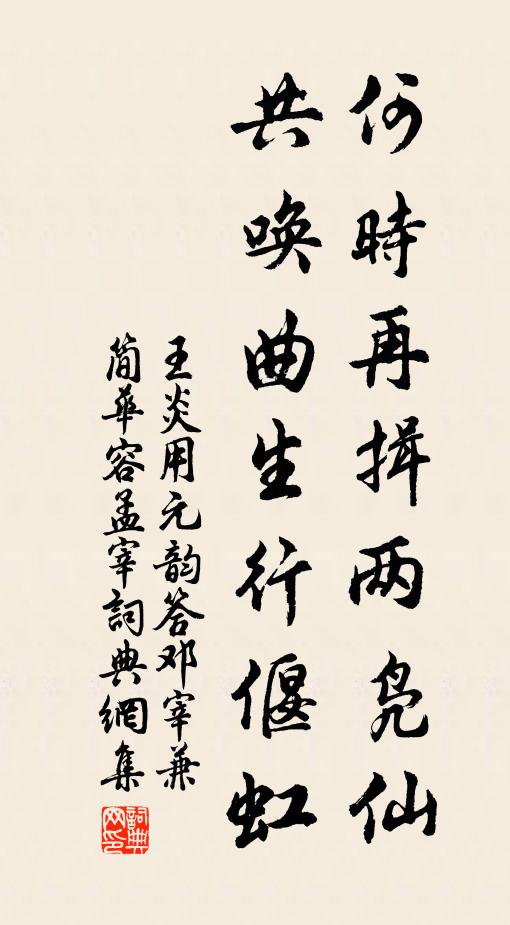 何時再揖两凫仙
共唤曲生行偃虹
王炎用元韵答邓宰兼
简華容孟宰詞典網集
詞典网印